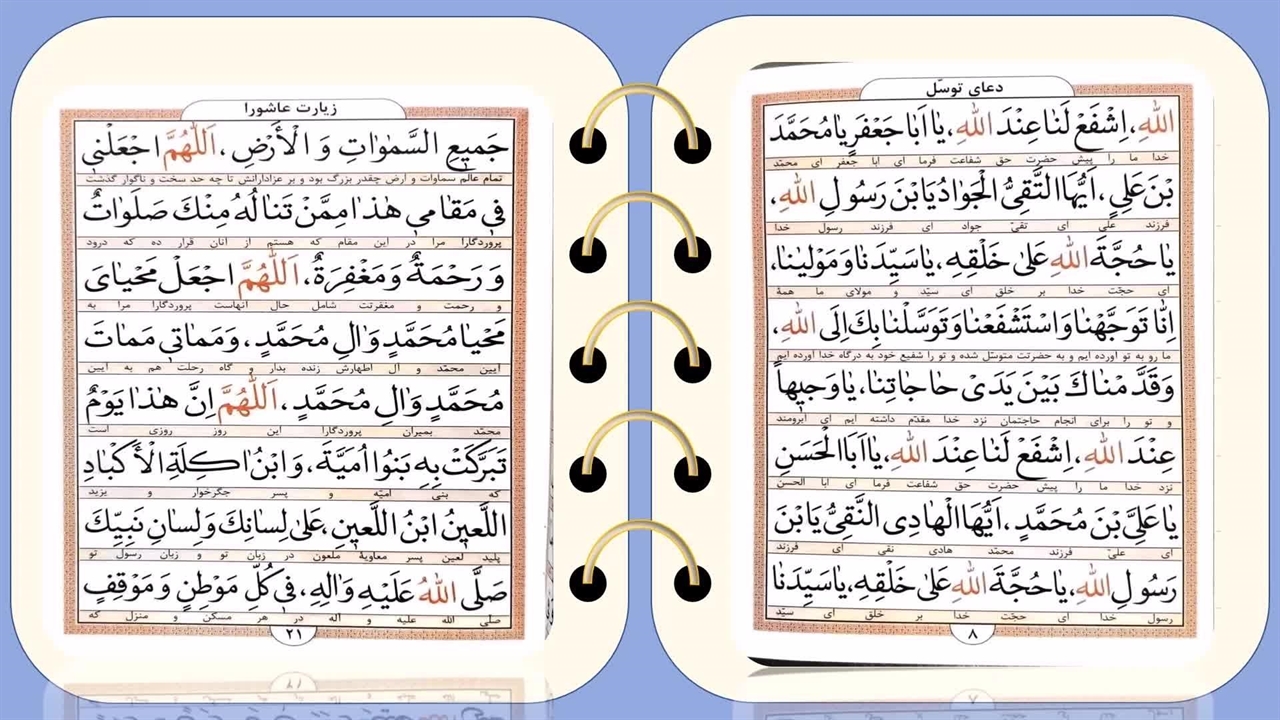 دعای توسّل
اللهِ، اِشْفَعْ لَنا عِنْدَ اللهِ، يا اَبا جَعْفَرٍ يا مُحَمَّدَ
خدا ما را پیش حضرت حق شفاعت فرمای ای ابا جعفر ای محمّد
بْنَ عَلِيٍ، اَيُّهَا التَّقِيُّ الْجَوادُ يَا بْنَ رَسُولِ اللهِ،
فرزند علی ای تقیّ جواد ای فرزند رسول خدا
يا حُجَّةَ اللهِ عَلىٰ خَلْقِهِ، يا سَيِّدَنا وَمَوْلينا،
ای حجّت خدا بر خلق ای سیّد و مولای ما همهٔ
اِنّا تَوَجَّهْنا وَاسْتَشْفَعْنا وَتَوَسَّلْنا بِكَ اِلَى اللهِ،
ما رو به تو آورده ایم و به حضرتت متوسّل شده و تو را شفیع خود به درگاه خدا آورده ایم
وَقَدَّمْناكَ بَيْنَ يَدَىْ حاجاتِنا، يا وَجيهاً
و تو را برای انجام حاجتمان نزد خدا مقدّم داشته ایم ای آبرومند
عِنْدَ اللهِ، اِشْفَعْ لَنا عِنْدَ اللهِ، يا اَبَا الْحَسَنِ
نزد خدا ما را پیش حضرت حق شفاعت فرما ای ابا الحسن
يا عَلِيَّ بْنَ مُحَمَّدٍ، اَيُّهَا الْهادِى النَّقِىُّ يَا بْنَ
ای علیّ فرزند محمّد هادی نقی ای فرزند
رَسُولِ اللهِ، يا حُجَّةَ اللهِ عَلىٰ خَلْقِهِ، يا سَيِّدَنا
رسول خدا ای حجّت خدا بر خلق ای سیّد
٨
زیارت عاشورا
جَميعِ السَّمٰوٰاتِ وَ الْاَرْضِ، اَللّٰهُمَّ اجْعَلْنى
تمام عالم سماوات و ارض چقدر بزرگ بود و بر عزادارانش تا چه حد سخت و ناگوار گذشت
فى مَقامى هٰذا مِمَّنْ تَنالُهُ مِنْكَ صَلَواتٌ
پروردگارا مرا در این مقام که هستم از آنان قرار ده که درود
وَ رَحْمَةٌ وَ مَغْفِرَةٌ، اَللّٰهُمَّ اجْعَلْ مَحْياىَ
و رحمت و مغفرتت شامل حال آنهاست پروردگارا مرا به
مَحْيا مُحَمَّدٍ وَ الِ مُحَمَّدٍ، وَ مَماتى مَماتَ
آیین محمّد و آل اطهارش زنده بدار و گاه رحلت هم به آیین
مُحَمَّدٍ وَ الِ مُحَمَّدٍ، اَللّٰهُمَّ اِنَّ هٰذا يَوْمٌ
محمّد بمیران پروردگارا این روز روزی است
تَبَرَّكَتْ بِهِ بَنُو اُمَيَّةَ، وَ ابْنُ اكِلَةِ الْاَكْبادِ
که بنی امیّه و پسر جگرخوار و یزید
اللَّعينُ ابْنُ اللَّعينِ، عَلىٰ لِسانِكَ وَ لِسانِ نَبِيِّكَ
پلید لعین پسر معاویهٔ ملعون در زبان تو و زبان رسول تو
صَلَّى اللهُ عَلَيْهِ وَ الِهِ، فى كُلِّ مَوْطِنٍ وَ مَوْقِفٍ
صلی الله علیه و آله در هر مسکن و منزل که
٢١